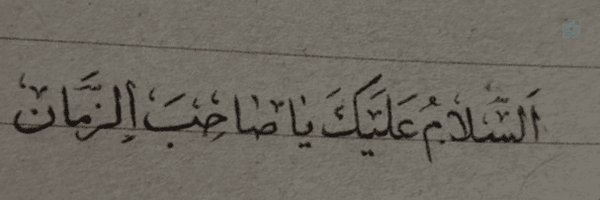 اَلسَّلَامُ عَلَيْكَ يَا صَاحِبَ الزَّمَانِ